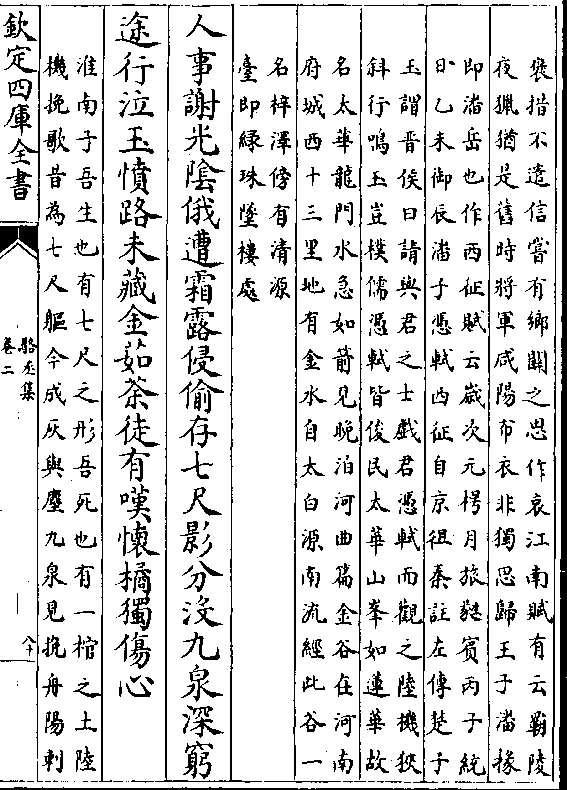 褒揩不遺信嘗有鄉關之思作哀江南賦有云覇陵
夜獵猶是舊時將軍咸陽布衣非獨思歸王子潘掾
即潘岳也作西征賦云嵗次元枵月旅蕤賓丙子統
日乙未御辰潘子憑軾西征自京徂秦註左傳楚子
玉謂晋侯曰請與君之士戲君憑軾而觀之陸機狹
斜行鳴玉豈樸儒憑軾皆俊民太華山峯如蓮華故
名太華龍門水急如箭見晚泊河曲篇金谷在河南
府城西十三里地有金水自太白源南流經此谷一
名梓澤傍有清源
臺即緑珠墜樓處
人事謝光隂俄遭霜露侵偷存七尺影分没九泉深窮
途行泣玉憤路未藏金茹荼徒有嘆懷橘獨傷心
淮南子吾生也有七尺之形吾死也有一棺之土陸
機挽歌昔為七尺軀今成灰與塵九泉見挽舟陽刺
欽定四庫全書
駱丞集
卷二
八十